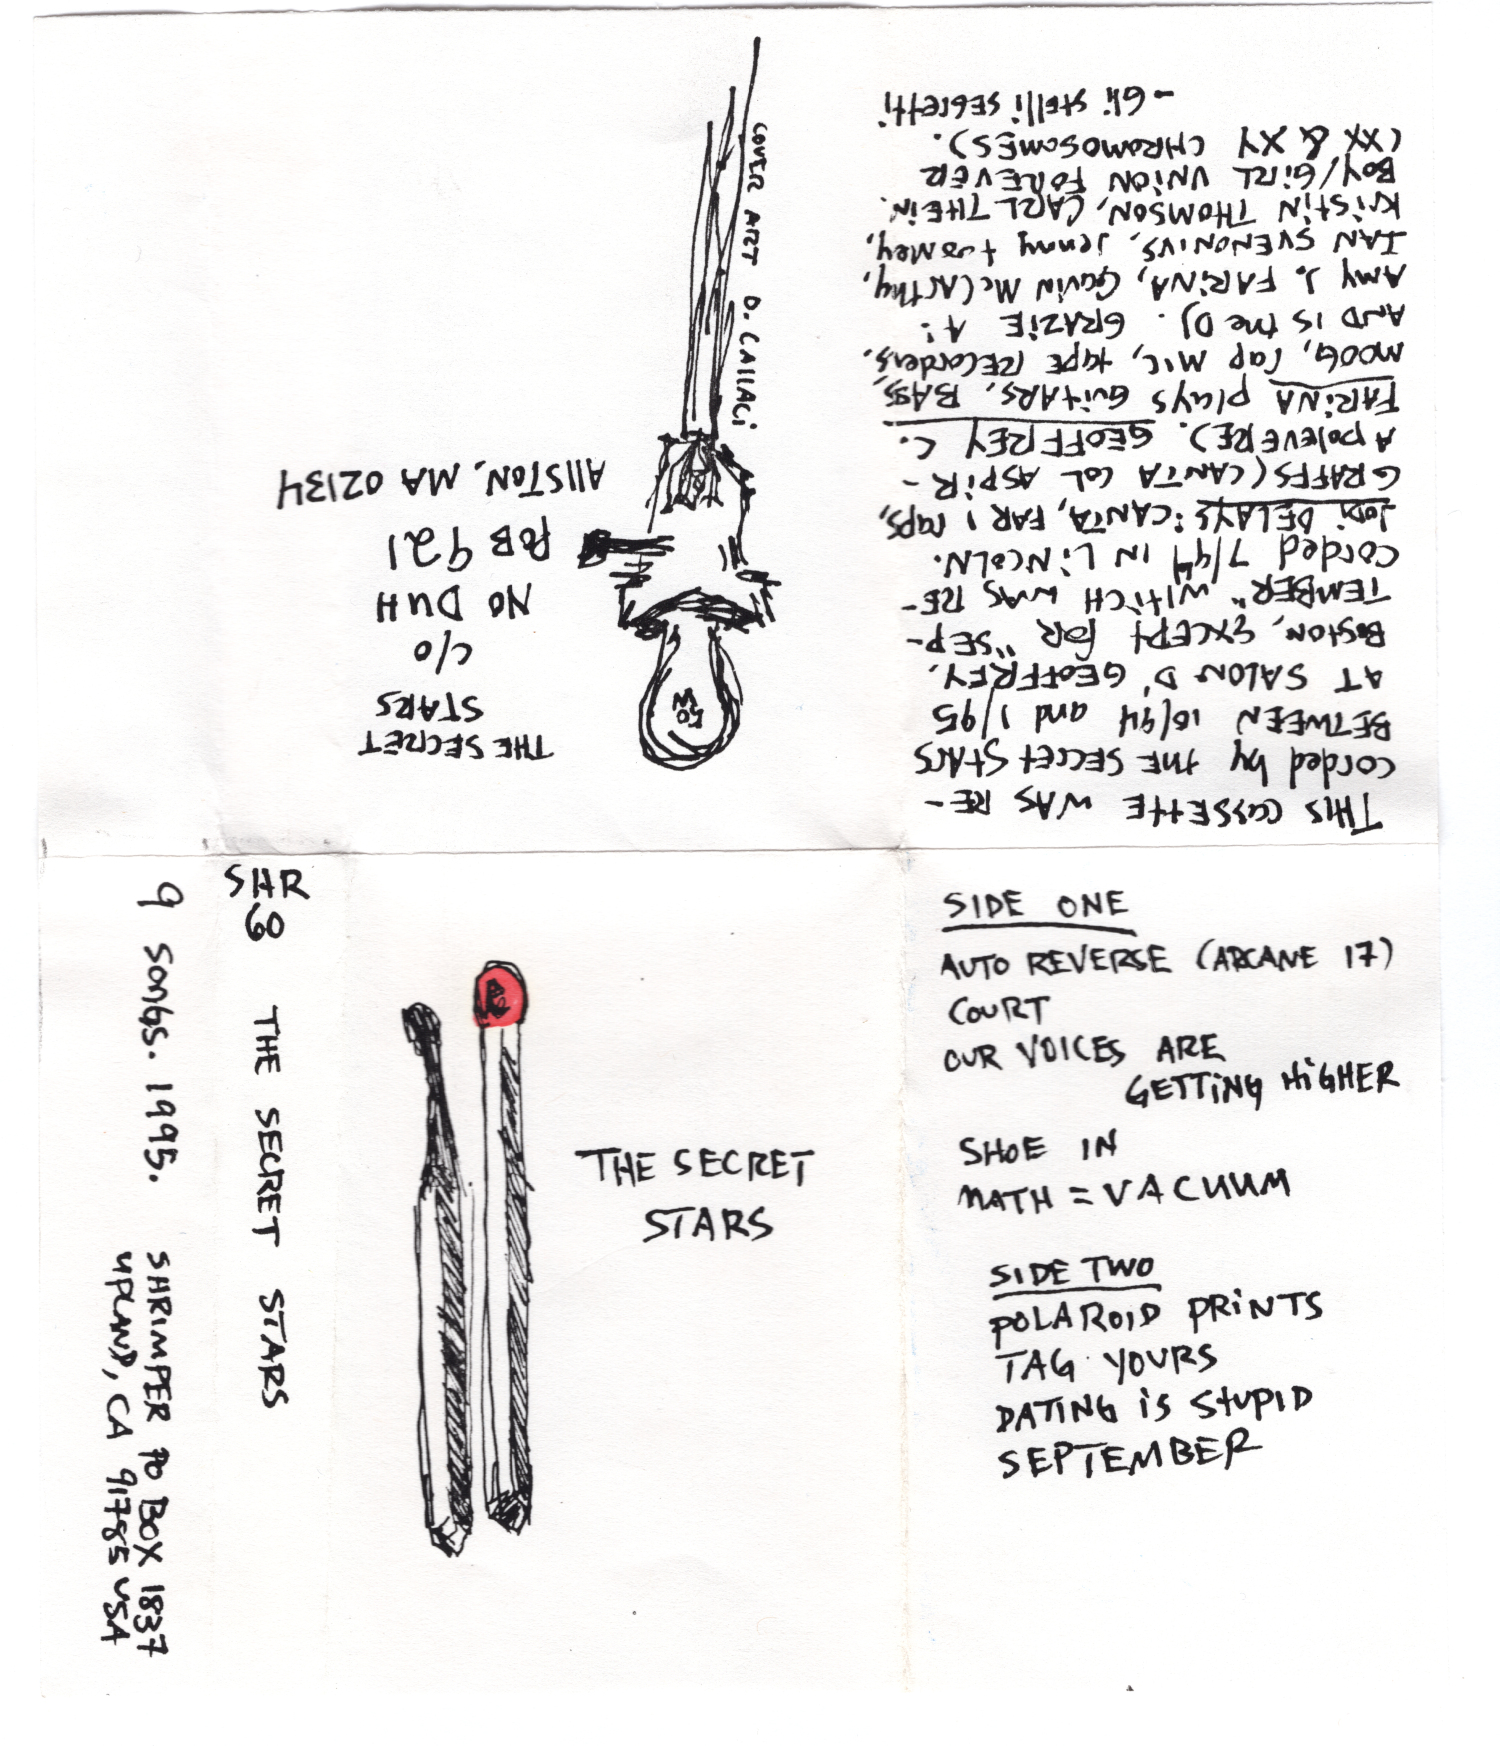 SHR
69
THE SECRET STARS
9 SONGS. 1995.
SHRIMPER PO BOX 1837
UPLAND, CA 91785 USA
THE SECRET
STARS
SIDE ONE
AUTO REVERSE (ARCANE 17)
COURT
OUR VOICES ARE
GETTING HIGHER
SHOE IN
MATH = VACUUM
SIDE TWO
POLAROID PRINTS
TAG YOURS
DATING iS STUPID
SEPTEMBER
THIS CASSETTE WAS RE-
corded by the SECRET STARS
BETWEEN 10/94 and 1/95
AT SALON D' GEOFFREY,
BOSTON, EXCEPT FOR "SEP-
TEMBER" WHICH WAS RE-
corded 7/94 IN LINCOLN.
Jodi DELAYS: CANTA, FAR I raps,
GRAFFS (CANTA COL ASPIR-
APOLEVERE). GEOFFREY C.
FARINA plays GUITARS, BASS,
MOOG, rap MIC, tape RECORDERS,
AND IS the DJ. GRAZIE A:
AMY J. FARINA, Gavin McCArthy,
IAN SVENONIUS, Jenny toomey,
KristiN THOMSON, CARL THEIN.
BOY/GiRL UNION FOREVER
(XX & XY CHROMOSOMES).
- Gli stelli SEGRETTI
THE SECRET
STARS
c/o
NO DUH
POB 921
AllSTON, MA 02134
COVER ART D. CAllACi
40
W